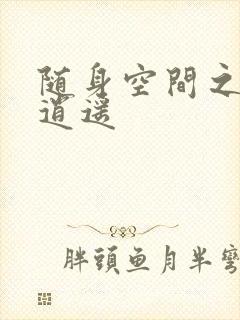 随身空間之
逍遥
胖頭鱼月半彎